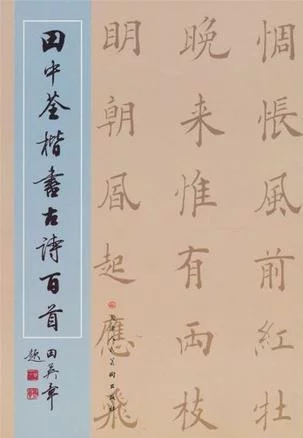 惆悵風前紅牡
晚来惟有両枝
明朝凮起應飛
田中荃楷書古詩百首
田英章
題